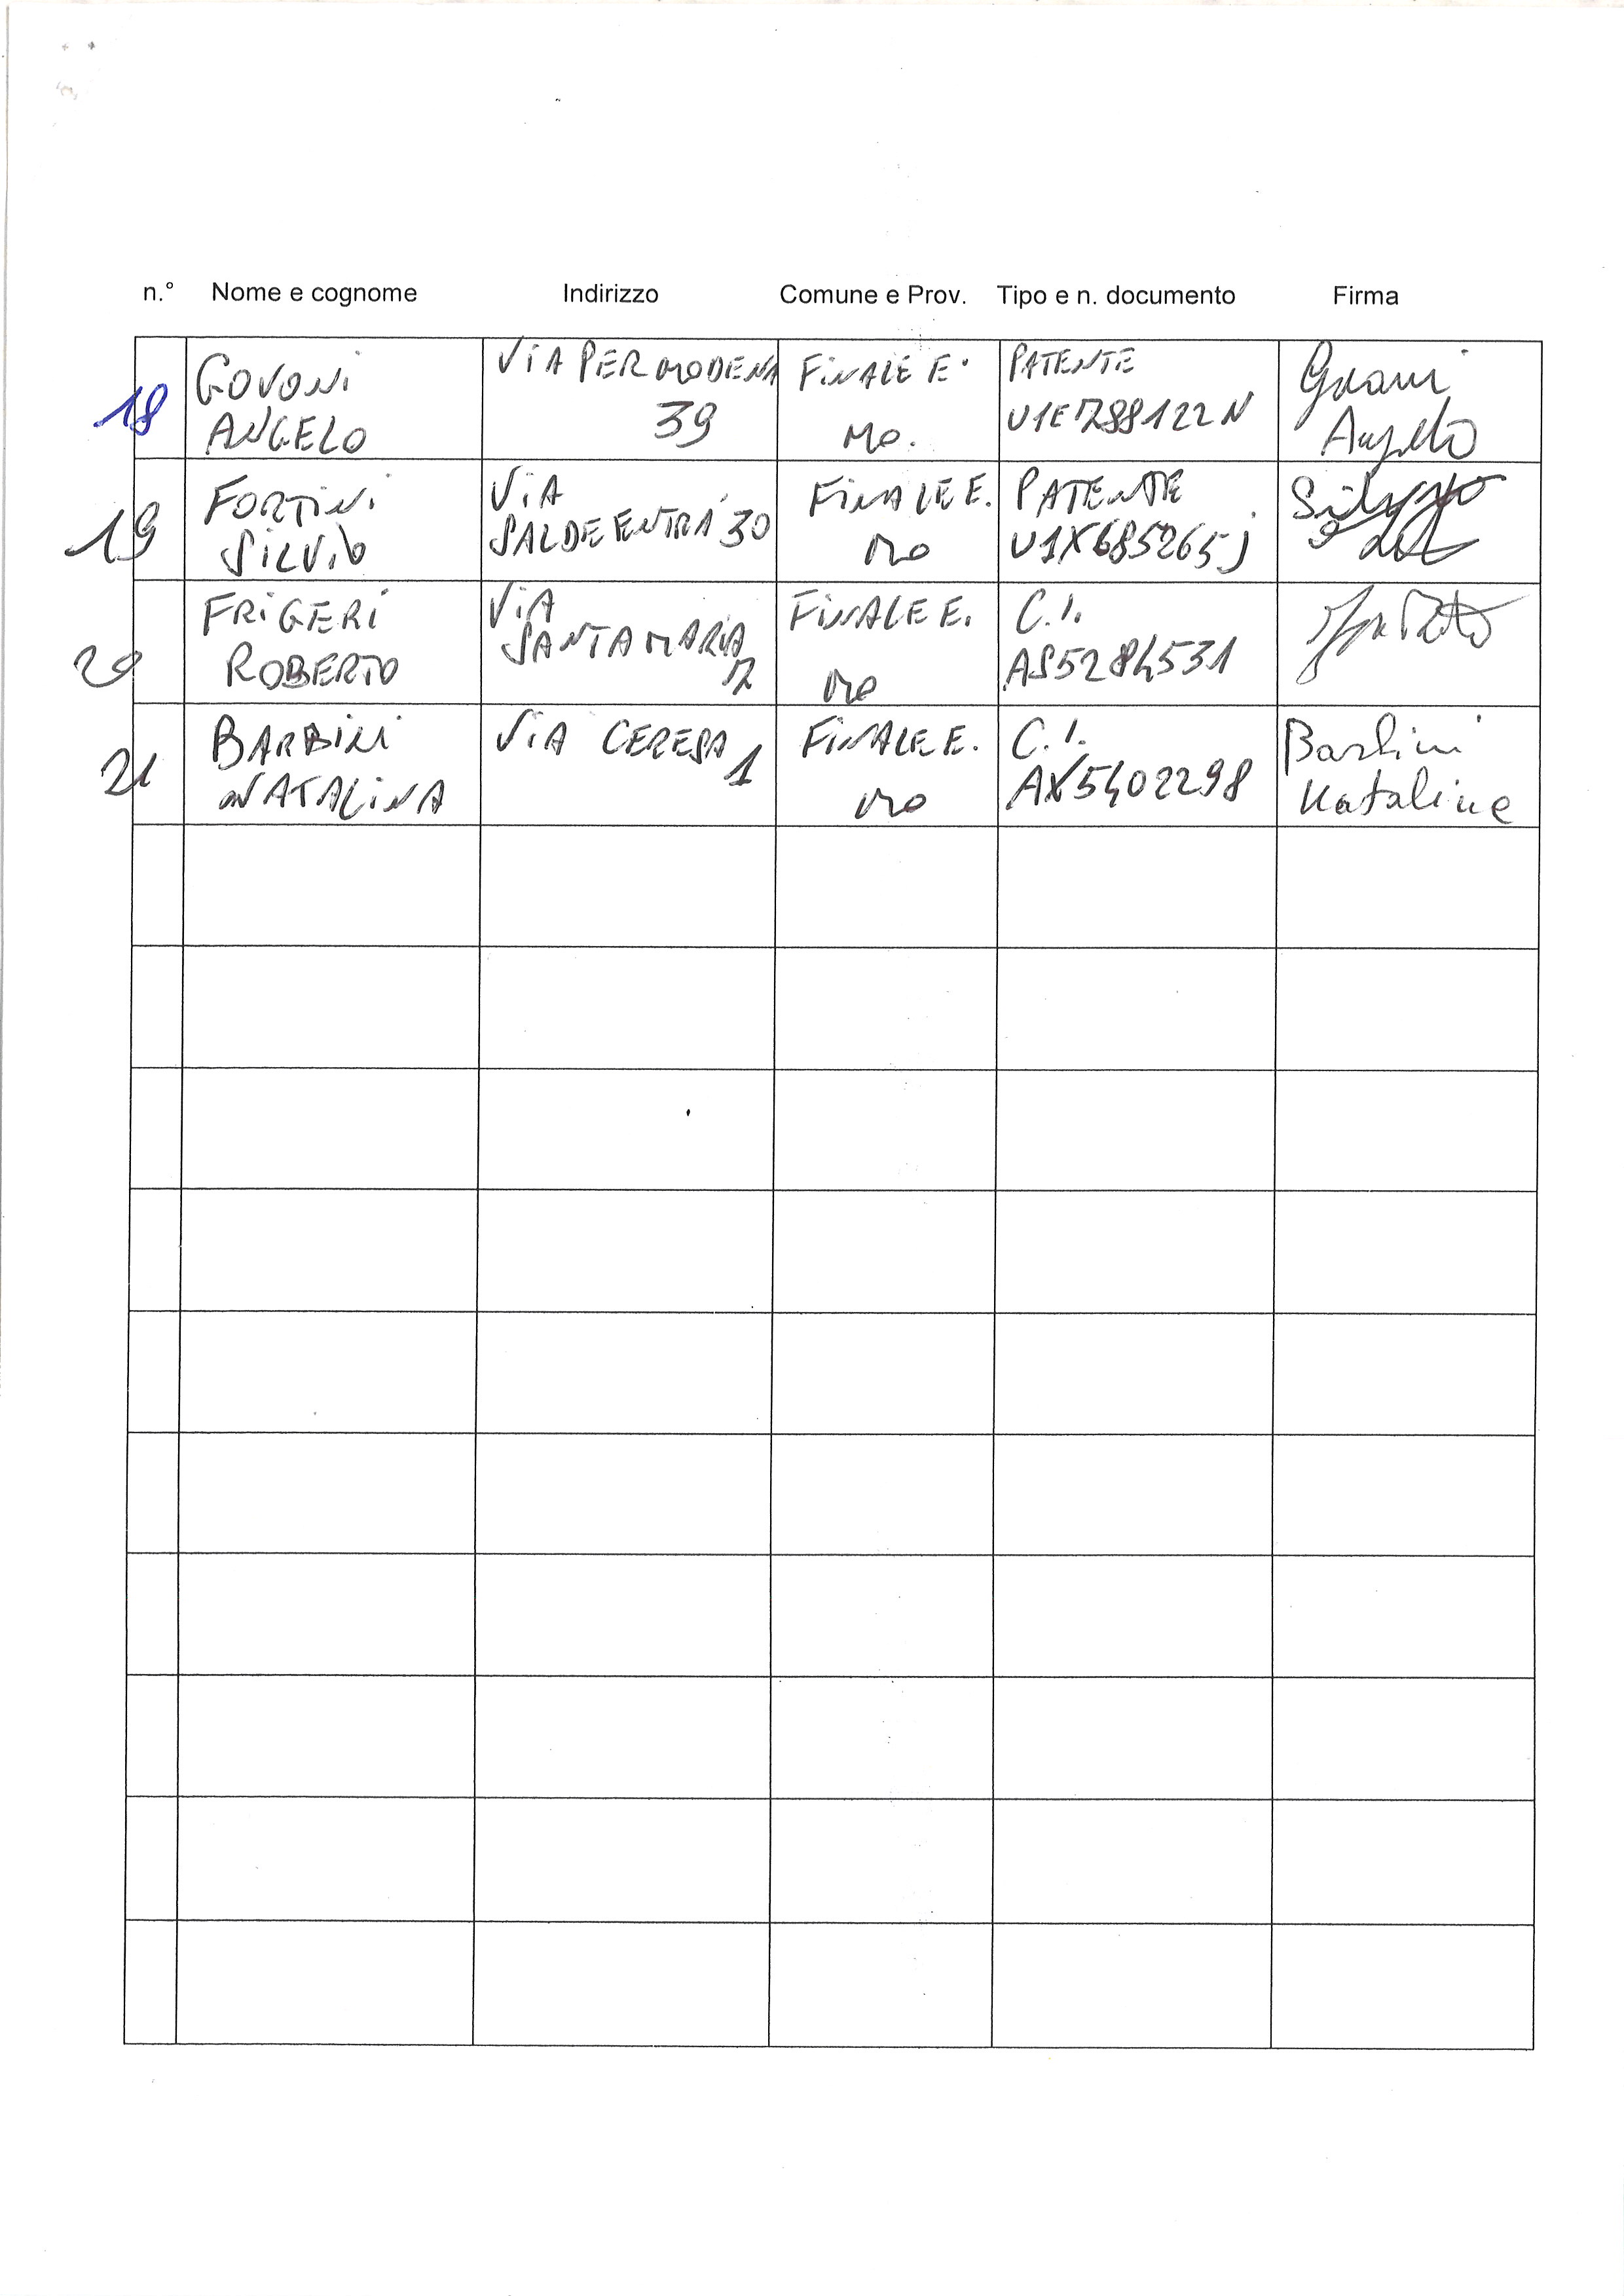 n.° Nome e cognome Indirizzo Comune e Prov. Tipo e n. documento Firma
18 GOVONI ANGELO VIA PER MODENA 39 FINALE E. MO. PATENTE U1E788122N Govoni Angelo
19 FORTINI SILVIO VIA SALDE ENTRÁ 30 FINALE E. MO PATENTE U1X685265J Silvio
20 FRIGERI ROBERTO VIA SANTA MARIA FINALE E. MO C.I. AS5284531
21 BARBINI NATALINA VIA CERESA 1 FINALE E. MO C.I. AX5402298 Barbini Natalina